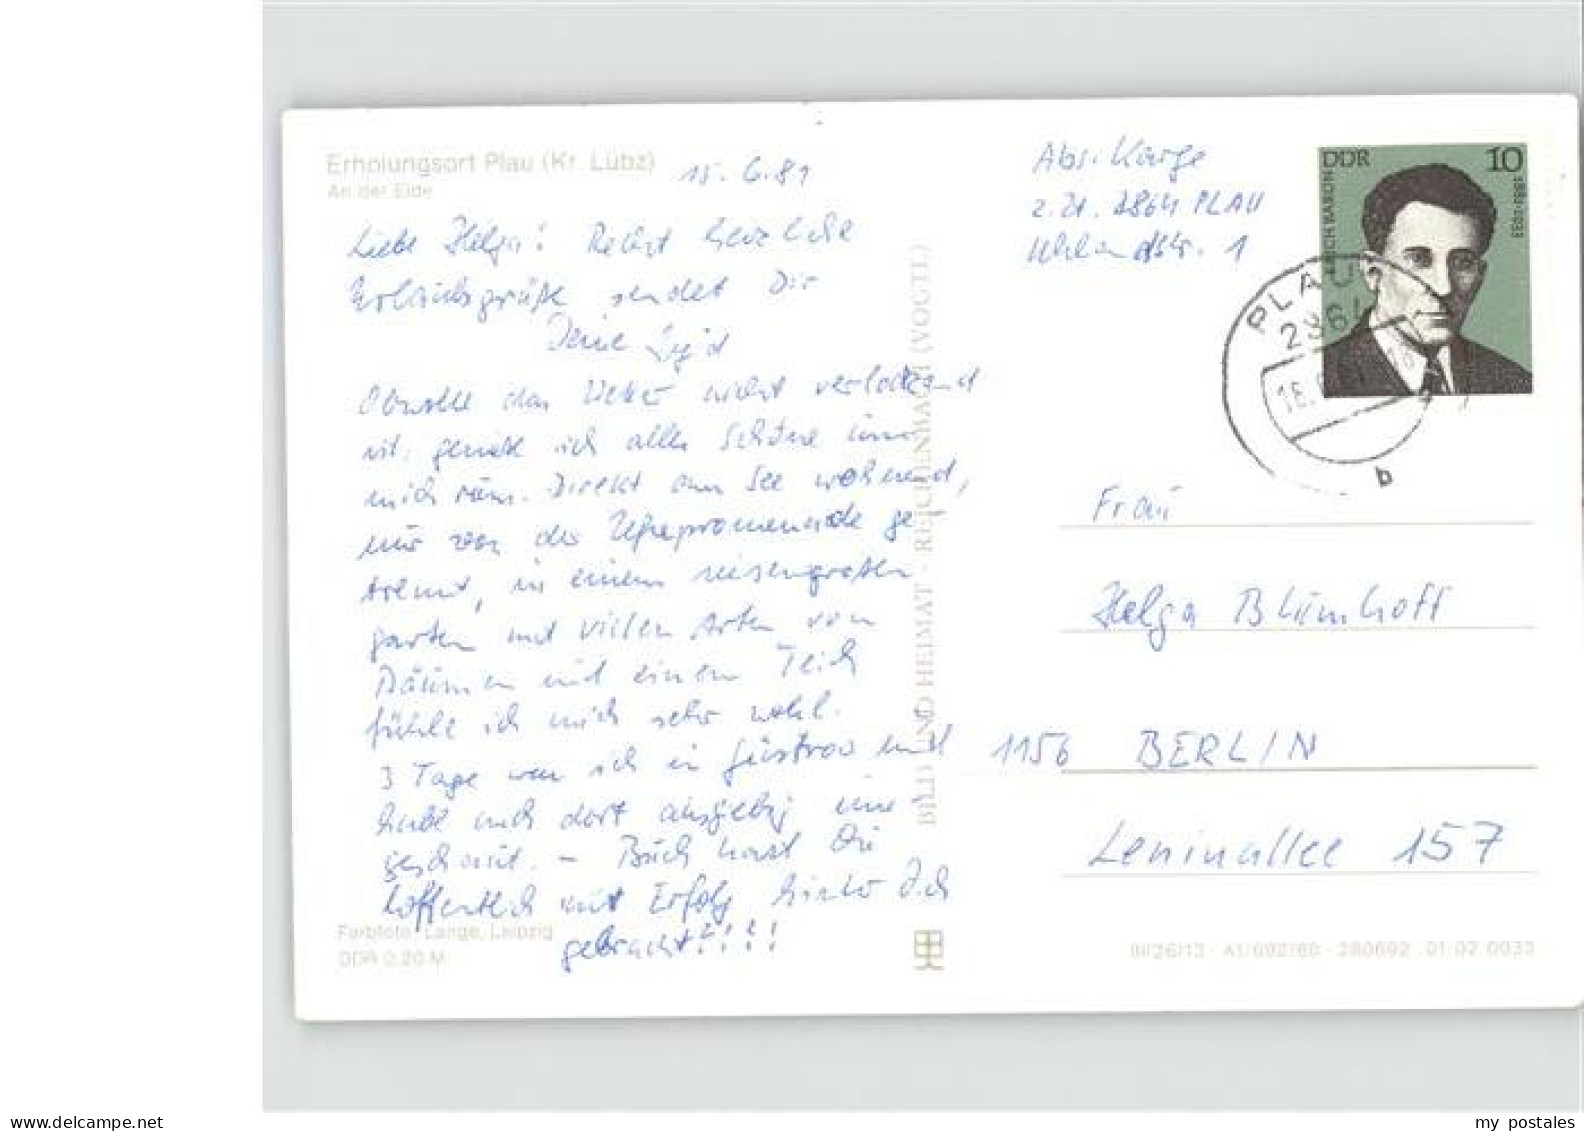 Erholungsort Plau (Kr. Lübz)
An der Elde
15. 6. 81
Liebe Helga! Recht herzliche
Urlaubsgrüße sendet Dir
Deine
Obwohl das Wetter nicht verlockend
ist, genieße ich alles Schöne um
mich rum. Direkt am See wohnend,
nur von der Uferpromenade ge-
trennt, in einem riesengroßen
Garten mit vielen Arten von
Bäumen und einem Teich
fühle ich mich sehr wohl.
3 Tage war ich in Güstrow und
habe mich dort ausgiebig um-
geschaut. – Buch hast Du
hoffentlich mit Erfolg hinter Dich
gebracht?!?!
Farbfoto: Lange, Leipzig
DDR 0,20 M
BILD UND HEIMAT · REICHENBACH (VOGTL)
Abs. Karge
z. Zt. 2864 PLAU
Uhlandstr. 1
DDR 10
ERICH BARON
1881-1933
PLAU
2864
b
Frau
Helga Blumhoff
1156 BERLIN
Leninallee 157
III/26/13 · A1/692/80 · 280692 01 02 0033
www.delcampe.net
my postales